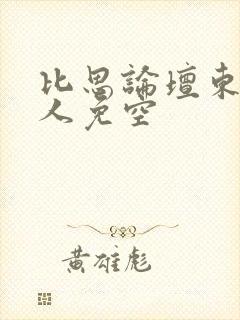 比思論壇東
人免空
黃雄彪